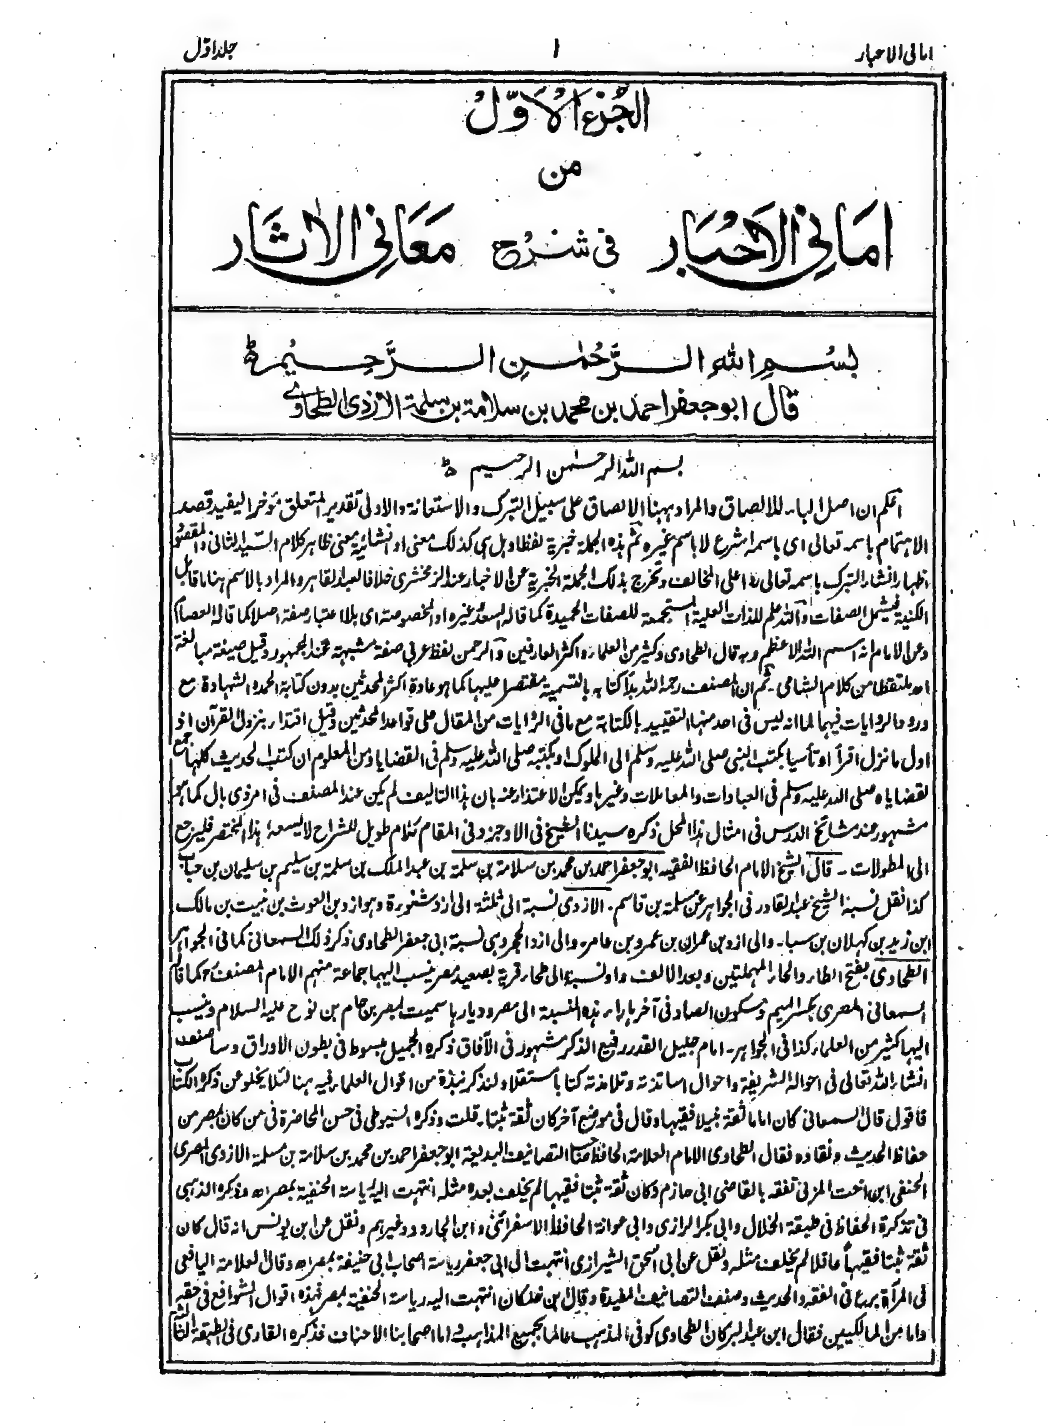 امانی الاحبار
١
جلد اوّل
الجُزءُ الْاَوّلُ
من
امَانِی الاَحْبَار فی شرح مَعَانِی الاٰثَار
بِسْمِ اللهِ الرَّحْمٰنِ الرَّحِیْمِ ط
قال ابو جعفر احمد بن محمد بن سلامة بن سلمة الازدی الطحاوی
بسم الله الرحمٰن الرحیم ط
اعلم ان اصل الباء للالصاق والمراد ههنا الالصاق علی سبیل التبرک والاستعانة والاولی تقدیر المتعلق مؤخرا لیفید قصد
الاهتمام باسمه تعالی ای باسمه اشرع لا باسم غیره ثم هذه الجملة خبریة لفظا وهل هی کذلک معنی او انشائیة معنی ظاهر کلام السید الثانی والمقصود
اظهار انشاء التبرک باسمه تعالی ردا علی المخالف وتخرج بذلک الجملة الخبریة عن الاخبار عند الزمخشری خلافا لعبد القاهر والمراد بالاسم هنا ما قابل
الکنیة فیشمل الصفات والله علم للذات العلیة المستجمعة للصفات الحمیدة کما قاله السعد وغیره او المخصوصة ای بلا اعتبار صفة اصلا کما قاله العصام
وعن الامام انه اسم الله الاعظم وبه قال الطحاوی وکثیر من العلماء واکثر العارفین والرحمن لفظ عربی صفة مشبهة عند الجمهور وقیل صیغة مبالغة
اھ ملتقطا من کلام الشامی ۔ ثم ان المصنف رحمه الله بدأ کتابه بالتسمیة مقتصرا علیها کما هو عادة اکثر المحدثین بدون کتابة الحمد والشهادة مع
ورود الروایات فیهما لما انه لیس فی احد منها التقیید بالکتابة مع ما فی الروایات من المقال علی قواعد المحدثین وقیل اقتداء بنزول القرآن اذ
اول ما نزل اقرأ او تأسیا بکتب النبی صلی الله علیه وسلم الی الملوک او بکتبه صلی الله علیه وسلم فی القضایا ومن المعلوم ان کتب الحدیث کلها جمع
لقضایاه صلی الله علیه وسلم فی العبادات والمعاملات وغیرها ویمکن الاعتذار عنه بان هذا التالیف لم یکن عند المصنف فی امر ذی بال کما هو
مشهور عند مشائخ الدرس فی امثال هذا المحل ذکره سیدنا الشیخ فی الاوجز وفی المقام کلام طویل للشراح لا یسعه هذا المختصر فلیرجع
الی المطولات ۔ قال الشیخ الامام الحافظ الفقیه ابو جعفر احمد بن محمد بن سلامة بن سلمة بن عبد الملک بن سلمة بن سلیم بن سلیمان بن جناب
کذا نقل نسبة الشیخ عبد القادر فی الجواهر عن مسلمة بن قاسم ۔ الازدی نسبة الی ثلثة الی ازد شنوءة وهو ازد بن الغوث بن نبیت بن مالک
ابن زید بن کهلان بن سبا ۔ والی ازد بن عمران بن عمرو بن عامر ۔ والی ازد الحجر وهی نسبة ابی جعفر الطحاوی ذکر ذلک السمعانی کما فی الجواهر
الطحاوی بفتح الطاء والحاء المهملتین وبعد الالف واو نسبة الی طحا قریة بصعید مصر ینسب الیها جماعة منهم الامام المصنف کما قال
السمعانی المصری بکسر المیم وسکون الصاد فی آخرها راء هذه النسبة الی مصر ودیارها سمیت لمصر بن حام بن نوح علیه السلام وینسب
الیها کثیر من العلماء کذا فی الجواهر ۔ امام جلیل القدر رفیع الذکر مشهور فی الآفاق ذکره الجمیل مبسوط فی بطون الاوراق وساصنف
انشاء الله تعالی فی احواله الشریفة واحوال اساتذته وتلامذته کتابا مستقلا ولنذکر نبذة من اقوال العلماء فیه هنا لئلا یخلو عن ذکره الکتاب
فاقول قال السمعانی کان اماما ثقة نبیلا فقیها وقال فی موضع آخر کان ثقة ثبتا ۔ قلت وذکره السیوطی فی حسن المحاضرة فی من کان بمصر من
حفاظ الحدیث ونقاده فقال الطحاوی الامام العلامة الحافظ صاحب التصانیف البدیعة ابو جعفر احمد بن محمد بن سلامة بن سلمة الازدی المصری
الحنفی ابن اخت المزنی تفقه بالقاضی ابی حازم وکان ثقة ثبتا فقیها لم یخلف بعده مثله انتهت الیه ریاسة الحنفیة بمصر اھ وذکره الذهبی
فی تذکرة الحفاظ فی طبقة الخلال وابی بکر الرازی وابی عوانة الحافظ الاسفرائنی وابن الجارود وغیرهم ونقل عن ابن یونس انه قال کان
ثقة ثبتا فقیهاً عاقلا لم یخلف مثله ونقل عن ابی اسحق الشیرازی انتهت الی ابی جعفر ریاسة اصحاب ابی حنیفة بمصر اھ وقال العلامة الیافعی
فی المرآة برع فی الفقه والحدیث وصنف التصانیف المفیدة وقال ابن خلکان انتهت الیه ریاسة الحنفیة بمصر فهذه اقوال الشوافع فی حقه
واما من المالکیین فقال ابن عبد البر کان الطحاوی کوفی المذهب عالما بجمیع المذاهب واما اصحابنا الاحناف فذکره القاری فی الطبقة